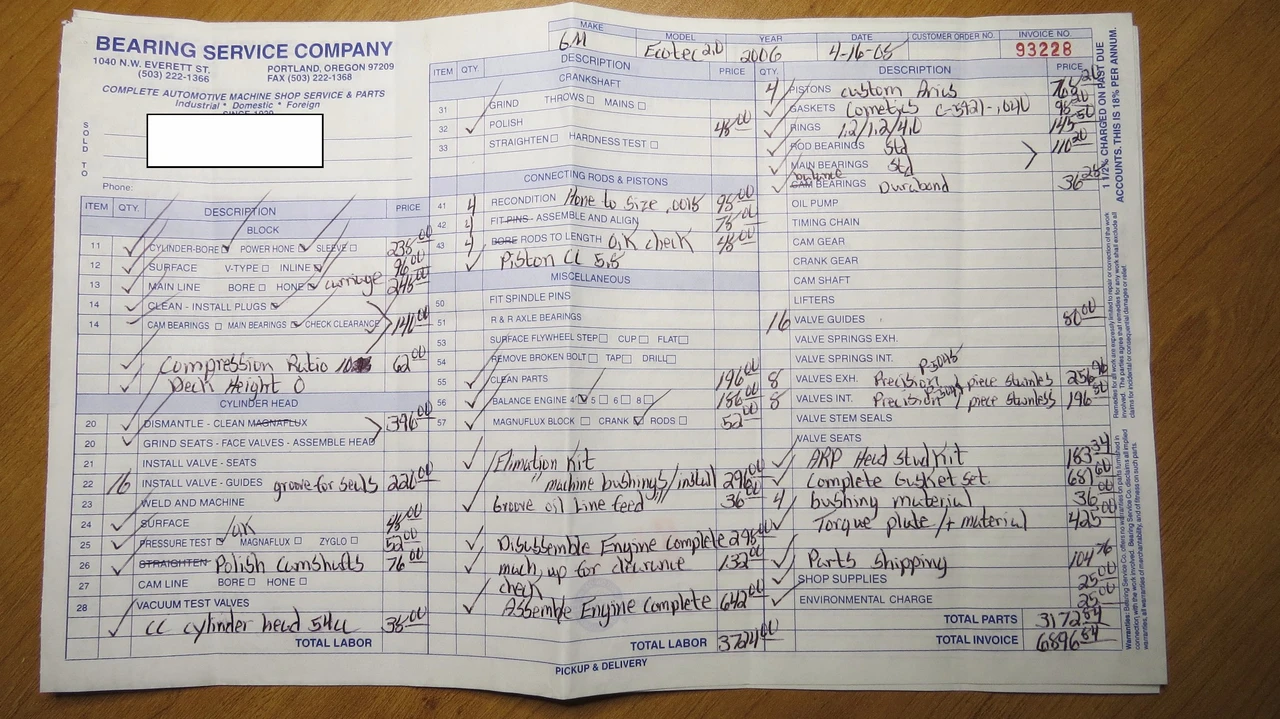 BEARING SERVICE COMPANY
1040 N.W. EVERETT ST. PORTLAND, OREGON 97209
(503) 222-1366 FAX (503) 222-1368
COMPLETE AUTOMOTIVE MACHINE SHOP SERVICE & PARTS
Industrial * Domestic * Foreign
SOLD TO
Phone:
MAKE MODEL YEAR DATE CUSTOMER ORDER NO. INVOICE NO.
GM Ecotec 2.0 2006 4-16-08 93228
ITEM QTY. DESCRIPTION PRICE
BLOCK
11 CYLINDER-BORE POWER HONE SLEEVE 235.00
12 SURFACE V-TYPE INLINE 96.00
13 MAIN LINE BORE HONE carriage 248.00
14 CLEAN - INSTALL PLUGS
14 CAM BEARINGS MAIN BEARINGS CHECK CLEARANCE 140.00
Compression Ratio 62.00
Deck Height 0
CYLINDER HEAD
20 DISMANTLE - CLEAN MAGNAFLUX 396.00
20 GRIND SEATS - FACE VALVES - ASSEMBLE HEAD
21 INSTALL VALVE - SEATS
22 16 INSTALL VALVE - GUIDES groove for seals 226.00
23 WELD AND MACHINE
24 SURFACE 48.00
25 PRESSURE TEST OK MAGNAFLUX ZYGLO 52.00
26 STRAIGHTEN Polish camshafts 76.00
27 CAM LINE BORE HONE
28 VACUUM TEST VALVES
CC cylinder head 54cc 38.00
TOTAL LABOR
ITEM QTY. DESCRIPTION PRICE
CRANKSHAFT
31 GRIND THROWS MAINS
32 POLISH 48.00
33 STRAIGHTEN HARDNESS TEST
CONNECTING RODS & PISTONS
41 4 RECONDITION Hone to size .0015 95.00
42 4 FIT PINS - ASSEMBLE AND ALIGN 75.00
43 4 BORE RODS TO LENGTH O.K check 48.00
Piston CC 5.5
MISCELLANEOUS
50 FIT SPINDLE PINS
51 R & R AXLE BEARINGS
53 SURFACE FLYWHEEL STEP CUP FLAT
54 REMOVE BROKEN BOLT TAP DRILL
55 CLEAN PARTS 196.00
56 BALANCE ENGINE 4 5 6 8 186.00
57 MAGNUFLUX BLOCK CRANK RODS 52.00
Elimation Kit
" machine bushings / install 296.00
Groove oil line feed " 36.00
Disassemble Engine Complete 298.00
mach up for clearance 132.00
check
Assemble Engine Complete 642.00
TOTAL LABOR 3724.00
PICKUP & DELIVERY
QTY. DESCRIPTION PRICE
4 PISTONS custom Arias 768.20
GASKETS Cometics C-5921-.040 98.20
RINGS 1.2/1.2/4.0 145.50
ROD BEARINGS Std 110.20
MAIN BEARINGS Std
balance
CAM BEARINGS Durabond 36.28
OIL PUMP
TIMING CHAIN
CAM GEAR
CRANK GEAR
CAM SHAFT
LIFTERS
16 VALVE GUIDES 80.00
VALVE SPRINGS EXH.
VALVE SPRINGS INT.
8 VALVES EXH. Precision 1 piece stainless 256.96
8 VALVES INT. Precision 1 piece stainless 196.80
VALVE STEM SEALS
VALVE SEATS
ARP Head stud Kit 183.34
Complete Gasket set 681.60
4 bushing material 36.00
Torque plate / + material 425.00
Parts shipping 104.76
SHOP SUPPLIES 25.00
ENVIRONMENTAL CHARGE 25.00
TOTAL PARTS 3172.84
TOTAL INVOICE 6896.84
1 1/2% CHARGED ON PAST DUE
ACCOUNTS. THIS IS 18% PER ANNUM.